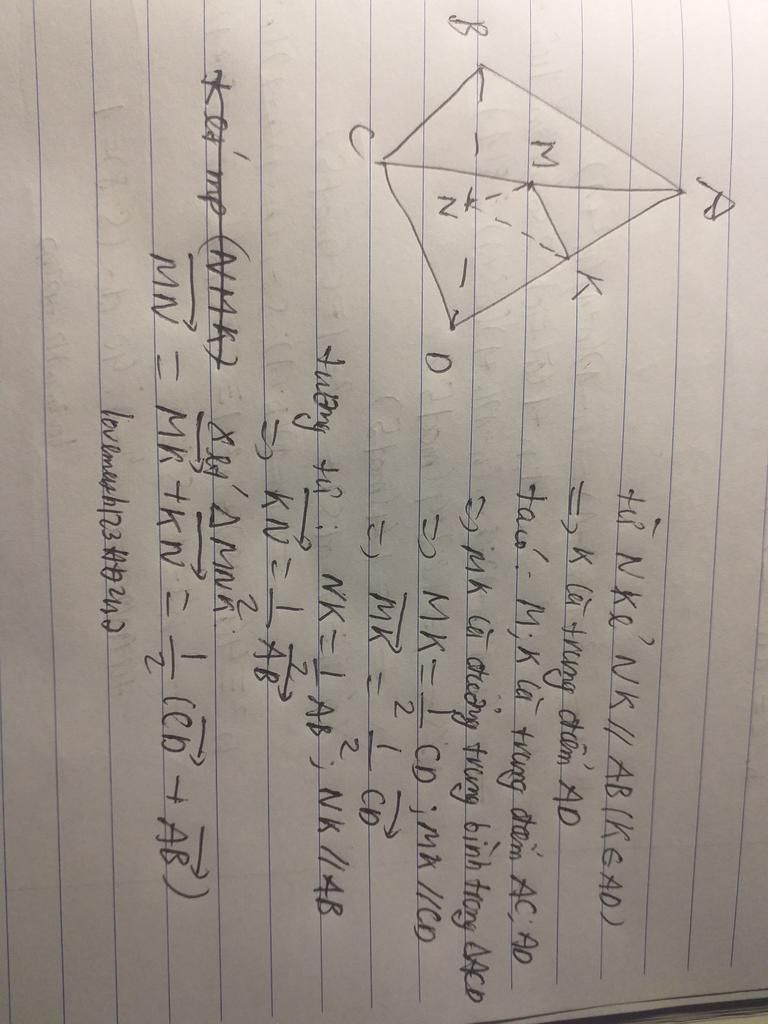 A
B
M
K
C
N
D
từ N kẻ NK // AB (K ∈ AD)
=> K là trung điểm AD
ta có: M, K là trung điểm AC, AD
=> MK là đường trung bình trong ΔACD
=> MK = 1/2 CD; MK // CD
=> \overrightarrow{MK} = 1/2 \overrightarrow{CD}
tương tự: NK = 1/2 AB; NK // AB
=> \overrightarrow{KN} = 1/2 \overrightarrow{AB}
Xét mp (NMK) xét ΔMNK:
\overrightarrow{MN} = \overrightarrow{MK} + \overrightarrow{KN} = 1/2 (\overrightarrow{CD} + \overrightarrow{AB})